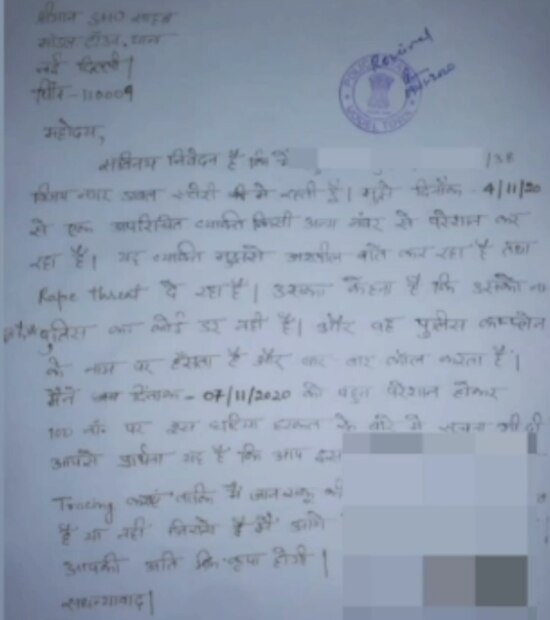 श्रीमान SHO साहब
मॉडल टाउन, थाना
नई दिल्ली।
पिन - 110009
Received
महोदय,
सविनय निवेदन है कि मैं /38
विजय नगर डबल स्टोरी में रहती हूँ। मुझे दिनांक - 4/11/20
से एक अपरिचित व्यक्ति किसी अन्य नंबर से परेशान कर
रहा है। यह व्यक्ति मुझसे अश्लील बातें कर रहा है तथा
Rape threat दे रहा है। उसका कहना है कि उसको
पुलिस का कोई डर नहीं है। और वह पुलिस कम्प्लेन
के नाम पर हंसता है और बार बार कॉल करता है।
मैंने दिनांक - 07/11/2020 को बहुत परेशान होकर
100 नं० पर इस घटिया हरकत के बारे में सूचना भी दी
आपसे प्रार्थना यह है कि आप इस
Tracing ताकि मैं जान सकू की
है या नहीं जिससे आगे
आपकी अति कृपा होगी।
सधन्यवाद।